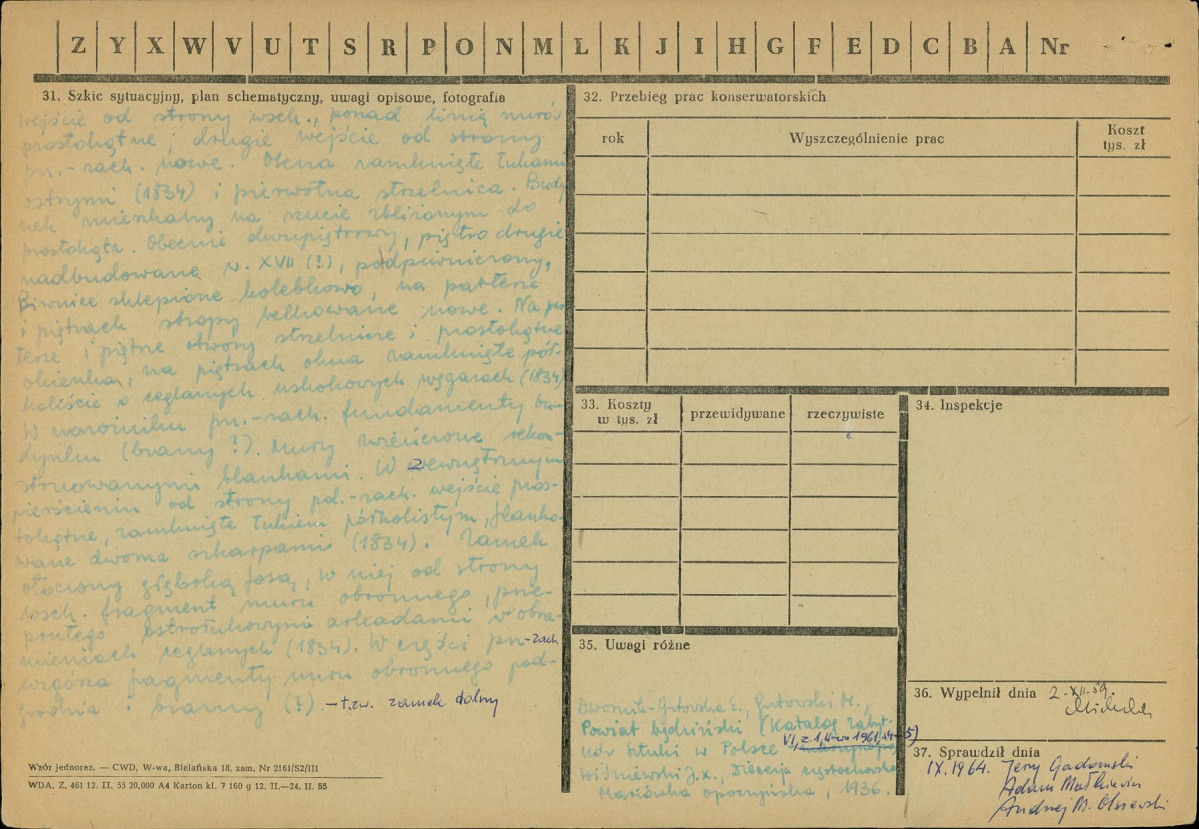 Z Y X W V U T S R P O N M Ł K J I H G F E D C B A Nr
31. Szkic sytuacyjny, plan schematyczny, uwagi opisowe, fotografia
wejście od strony wsch., ponad linią murów
prostokątne; drugie wejście od strony
pn.-zach. nowe. Okna zamknięte łukami
ostrymi (1834) i pierwotna strzelnica. Budy-
nek mieszkalny na rzucie zbliżonym do
prostokąta. Obecnie dwupiętrowy, piętro drugie
nadbudowane w. XVII (?), podpiwniczony,
Piwnice sklepione kolebkowo, na parterze
i piętrach stropy belkowane nowe. Na par-
terze i piętrze otwory strzelnicze i prostokątne
okienka, na piętrach okna zamknięte pół-
koliście o ceglanych uskokowych węgarach (1834)
W narożniku pn.-zach. fundamenty bu-
dynku (bramy?). Mury zwieńczone rekon-
struowanymi blankami. W zewnętrznym
pierścieniu od strony pd.-zach. wejście pros-
tokątne, zamknięte łukiem półkolistym, flanko-
wane dwoma szkarpami (1834). Zamek
otoczony głęboką fosą, w niej od strony
wsch. fragment muru obronnego, prze-
prutego ostrołukowymi arkadami w obra-
mieniach ceglanych (1834). W części pn-zach
wzgórza fragmenty muru obronnego pod-
grodzia i bramy (?). - tzw. zamek dolny
Wzór jednoraz. — CWD, W-wa, Bielańska 18, zam. Nr 2161/S2/III
WDA, Z, 461 12. II. 55 20,000 A4 Karton kl. 7 160 g 12. II.—24. II. 55
32. Przebieg prac konserwatorskich
rok Wyszczególnienie prac Koszt
tys. zł
33. Koszty
w tys. zł przewidywane rzeczywiste
34. Inspekcje
35. Uwagi różne
Dwornik-Gutowska E., Gutowski M.,
Powiat będziński (Katalog Zabyt-
ków Sztuki w Polsce VI, z. 1, W-wa 1961,
Wiśniewski J. x., Diecezja częstochowska
Marjówka opoczyńska, 1936.
36. Wypełnił dnia 2.XII.59.
37. Sprawdził dnia
IX.1964. Jerzy Gadomski
Adam Małkiewicz
Andrzej M. Olszewski